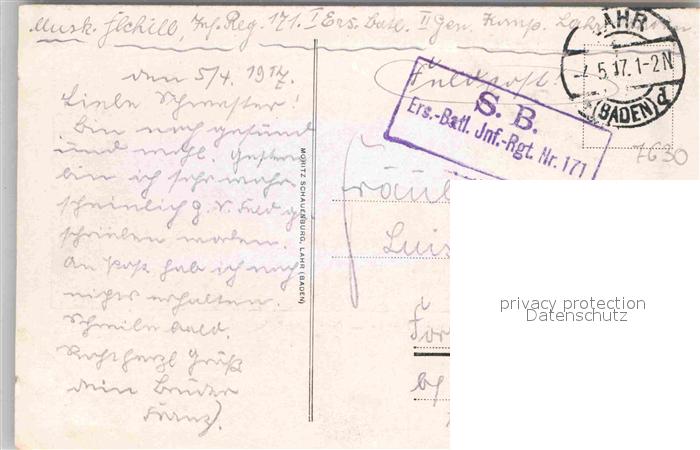 Musk. Ilchill, Inf. Reg. 171. I Ers. Batl. II Gen. Komp. Lahr
den 5/4. 1917.
Feldpost!
LAHR
5.17.1-2N
(BADEN) d
S. B.
Ers.-Batl. Jnf.-Rgt. Nr. 171
7630
Liebe Schwester!
Bin noch gesund
und wohl. Gestern
bin ich sehr wahr
scheinlich g. v. Feld ge
schrieben worden.
An Post hab ich noch
nichts erhalten.
Schreibe bald.
Recht herzl Grüß
dein Bruder
Franz
MORITZ SCHAUENBURG, LAHR (BADEN)
Fräul
Luis
privacy protection
Datenschutz